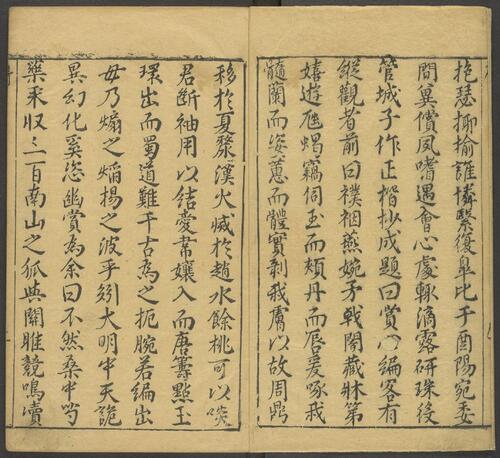 抱瑟揶揄誰憐繄復皐比于酉陽宛委
間冀償夙嗜遇會心處輒滴露研珠役
管城子作正楷抄成題曰賞心編客有
縱觀者前曰襆裀燕婉矛戟閣藏牀第
嬉遊虺蝎竊伺玉而頰丹而唇爰啄我
髓蘭而姿蕙而體實剝我膚以故周鼎
移於夏漦漢火滅於趙水餘桃可以啖
君斷袖用以結愛帬孃入而唐籌黠玉
環出而蜀道難千古為之扼腕若編出
毋乃煽之焰揚之波乎矧大明中天詭
異幻化奚恣幽賞為余曰不然桑中芍
藥采収三百南山之狐與關雎競鳴凟